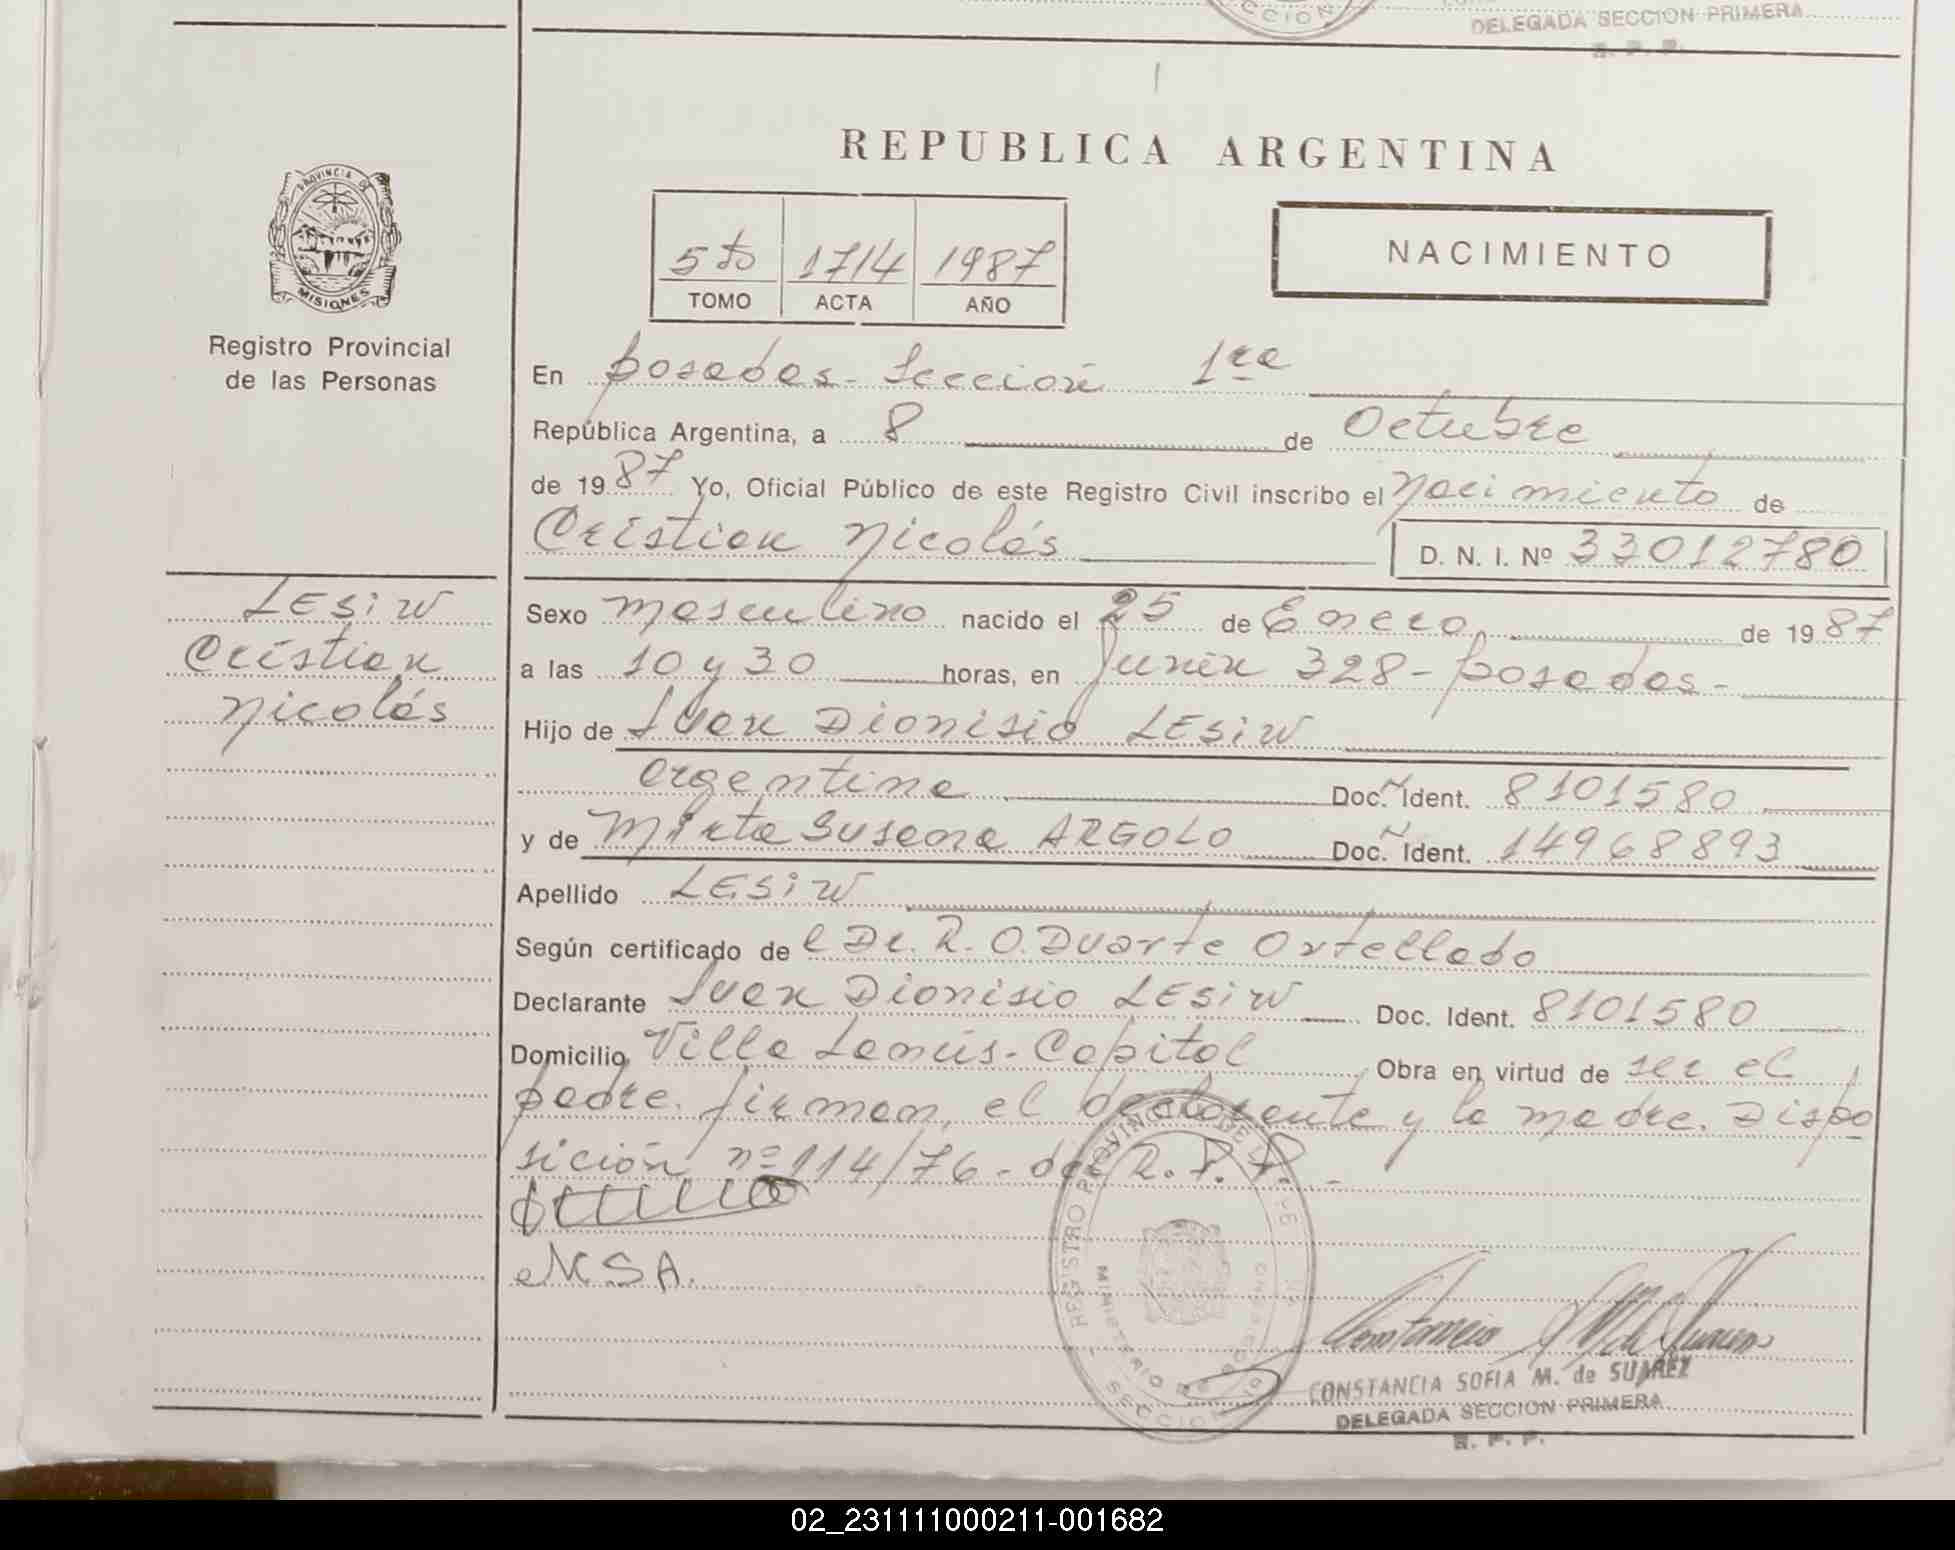 CCION
DELEGADA SECCION PRIMERA
R. P. P.
REPUBLICA ARGENTINA
PROVINCIA DE
MISIONES
Registro Provincial
de las Personas
5to 1714 1987
TOMO ACTA AÑO
NACIMIENTO
En Posadas - Sección 1ra
República Argentina, a 8 de Octubre
de 1987 Yo, Oficial Público de este Registro Civil inscribo el Nacimiento de
Cristian Nicolás D. N. I. Nº 33012780
LESiW
Cristian
Nicolás
Sexo Masculino nacido el 25 de Enero, de 1987
a las 10 y 30 horas, en Junín 328 - Posadas -
Hijo de Juan Dionisio LESiW
argentino Doc. Ident. 8101580
y de Mirta Susana ARGOLO Doc. Ident. 14968893
Apellido LESiW
Según certificado del Dr. R. O. Duarte Ortellado
Declarante Juan Dionisio LESiW Doc. Ident. 8101580
Domicilio Villa Lanús - Capital Obra en virtud de ser el
padre. firman, el declarante y la madre. Dispo
sición nº 114/76 - del R. P. P. -
MSA.
REGISTRO PROVINCIAL DE
MINISTERIO DE GOBIERNO
SECCION
CONSTANCIA SOFIA M. de SUAREZ
DELEGADA SECCION PRIMERA
R. P. P.
02_231111000211-001682